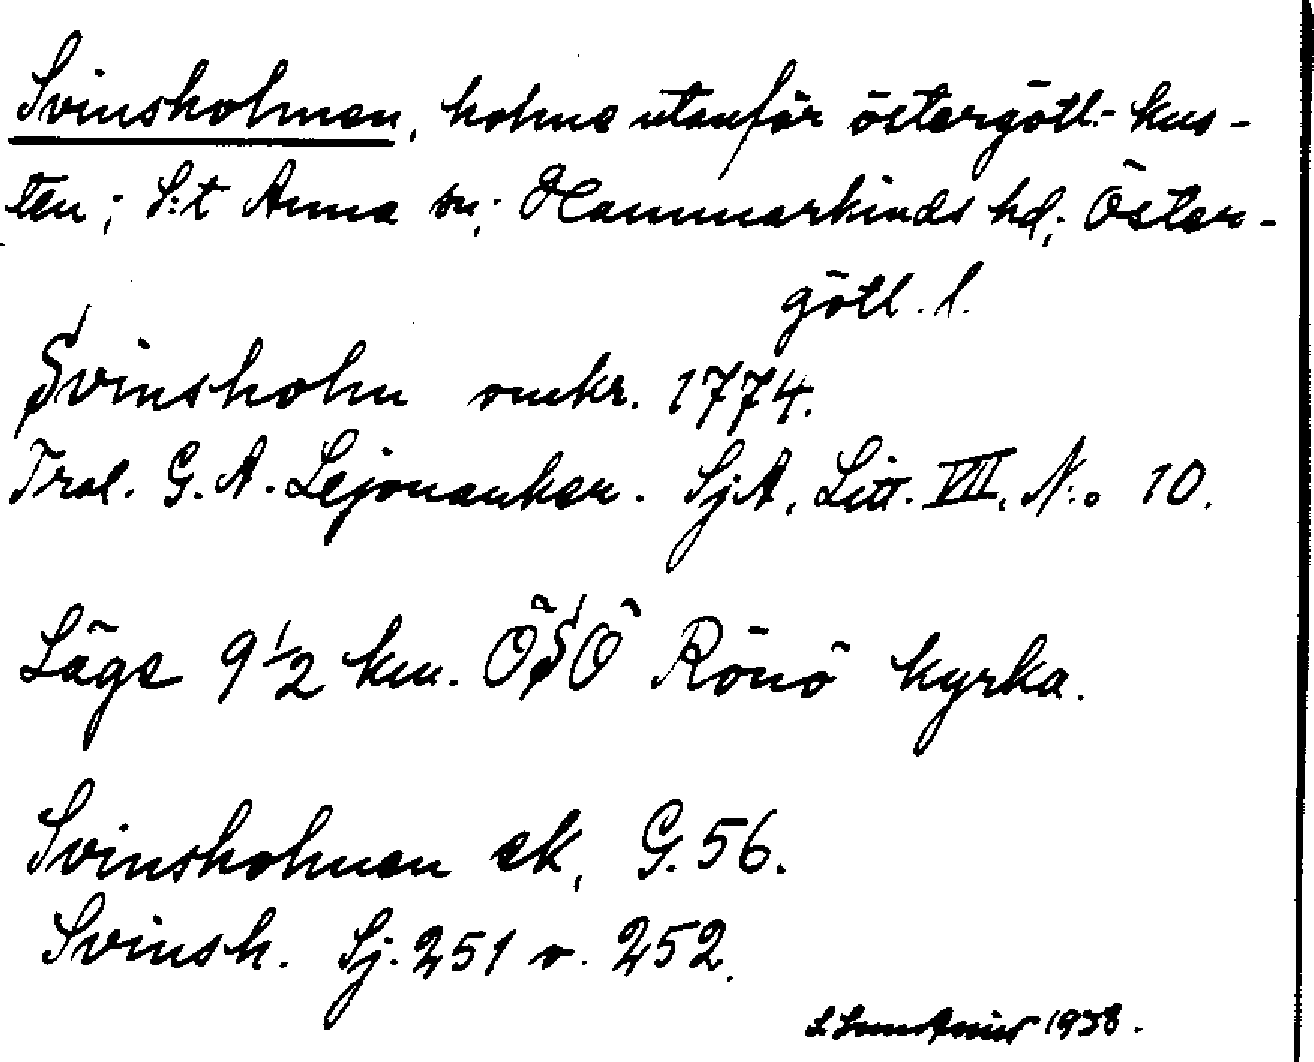 Svinsholmen, holme utanför östergötl. kus-
ten; S:t Anna sn; Hammarkinds hd; Öster-
götl. l.
Svinsholm omkr. 1774.
Trol. G. A. Lejonanker. SjA, Litt. VII, N:o 10.
Läge 9 1/2 km. ÖSÖ Rönö kyrka.
Svinsholmen ek, G. 56.
Svinsh. Sj. 251 o. 252.
1938.